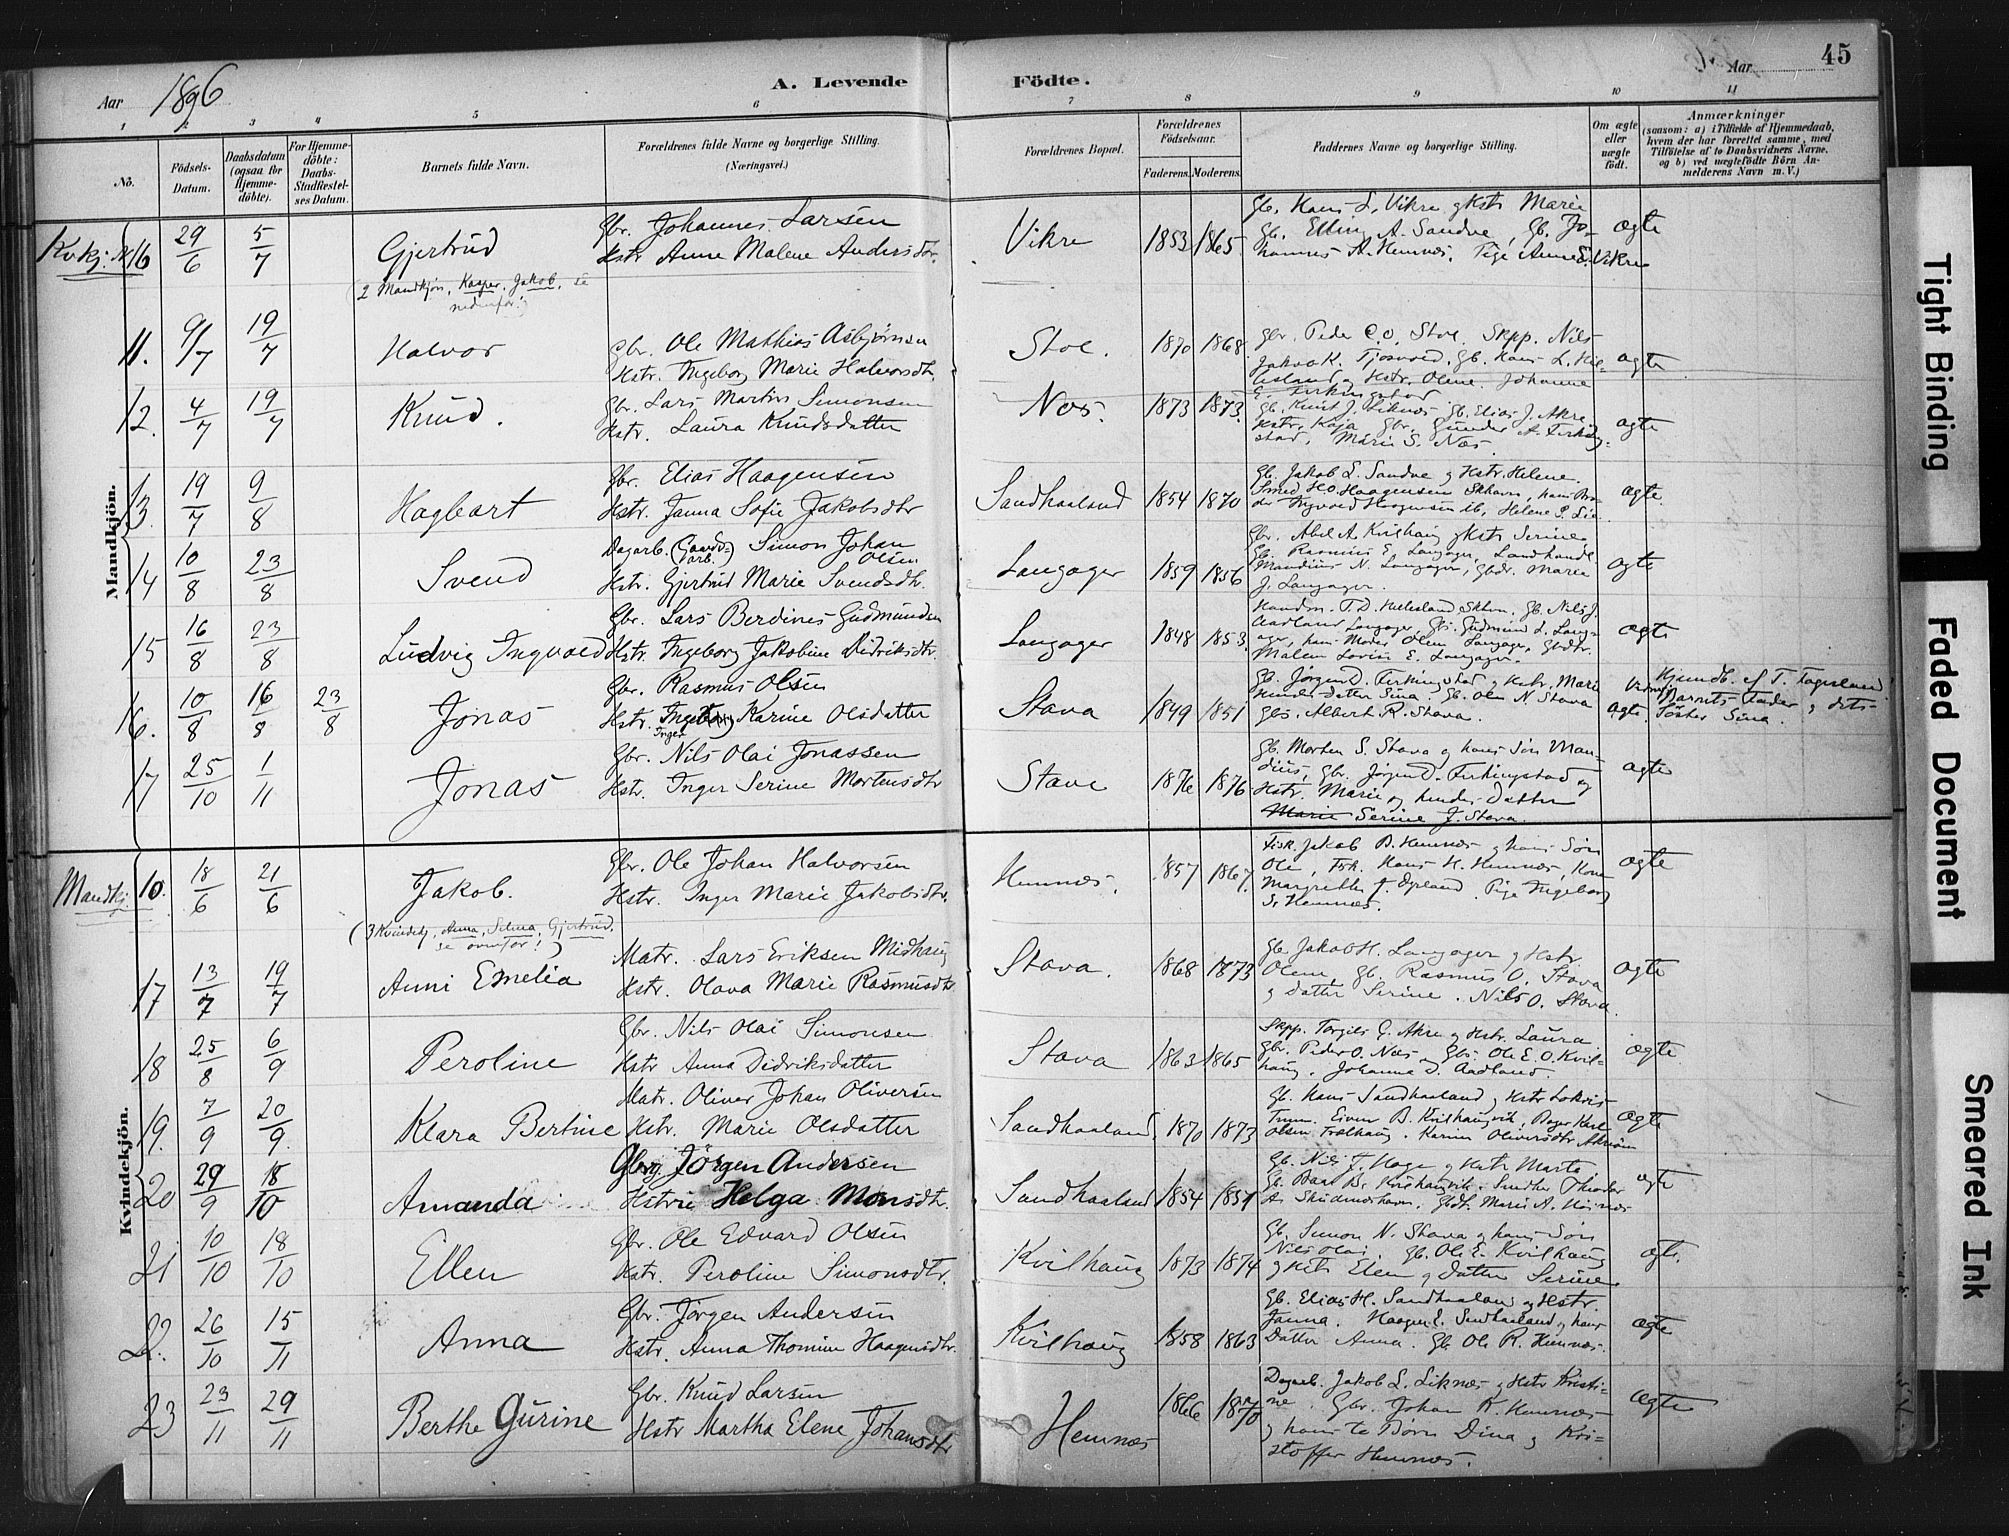 Aar 1896
A. Levende
Födte.
Aar
45
1 2 3 4 5 6 7 8 9 10 11
No.
Födsels-Datum.
Daabsdatum (ogsaa for Hjemme-döbte).
For Hjemme-döbte: Daabs-Stadfæstel-ses Datum.
Barnets fulde Navn.
Forældrenes fulde Navne og borgerlige Stilling.
(Næringsvei.)
Forældrenes Bopæl.
Forældrenes Födselsaar.
Faderens. Moderens.
Faddernes Navne og borgerlige Stilling.
Om ægte eller uægte födt.
Anmærkninger
(saasom: a) i Tilfælde af Hjemmedaab, hvem der har forrettet samme, med Tilföielse af to Daabsvidners Navne, og b) ved uægtefödte Börn An-melderens Navn m. V.)
Mandkjön.
Kvkj. N 16 29/6 5/7 Gjertrud
Gbr. Johannes Larsen
Hstr Anne Malene Andersdtr.
Vikre 1853 1865.
Gb. Hans L. Vikre og Hstr Marie
Gb. Elling A. Sandve, Gb. Jo-
hannes A. Hemnes. Pige Anne E. Vikre
ægte
(2 Mandkjön, Kasper, Jakob, se
nedenfor!)
11. 9/7 19/7 Halvor
Gbr. Ole Mathias Asbjörnsen
Hstr. Ingeborg Marie Halvorsdtr.
Stol. 1870 1868
Gbr. Peder C. O. Stol. Skpp. Nils
Jakob K. Tjosvold. Gb. Hans L. Hil-
lesland og Hstr. Olene. Johanne
E. Ferkingstad
ægte
12. 4/7 19/7 Knud.
Gbr. Lars Martin Simonsen
Hstr. Laura Knudsdatter
Nes. 1873 1873.
Gb. Knut J. Liknes. Gb. Elias J. Akre
Hstr. Kaja Gbr. Gunder A. Ferking-
stad, Marie S. Nes.
ægte
13. 19/7 9/8 Hagbart
Gbr. Elias Haagensen
Hstr. Janna Sofie Jakobsdtr
Sandhaaland 1854 1870
Gb. Jakob L. Sandve og Hstr. Helene.
Smed H. O. Haagensen Skhavn, hans Bro-
der Ingvald Haagensen ib, Helene P. Lie
ægte
14 10/8 23/8 Svend
Dagarb. (Gaards-arb.) Simon Johan Olsen
Hstr. Gjertrud Marie Svendsdtr.
Langager 1859 1856
Gbr. Abel A. Kvilhaug og Hstr Serine
Gb. Rasmus E. Langager, Landhandl.
Mandius N. Langager, Gbdr. Marie
J. Langager.
ægte
15 16/8 23/8 Ludvig Ingvald
Gbr. Lars Berdines Gudmundsen
Hstr. Ingeborg Jakobine Didriksdtr.
Langager 1848 1853.
Handm. T. D. Hillesland Skhvn. Gb. Nils J.
Aadland Langager, Gbs. Gudmund L. Lang-
ager, hans Moder Olene Langager, Gbdtr.
Malene Lovise E. Langager.
ægte
16. 10/8 16/8 23/8 Jonas
Gbr. Rasmus Olsen
Hstr. Inger Karine Olsdatter
Stava 1849 1851
Gb. Jörgen D. Ferkingstad og Hstr. Marie
hendes datter Sina. Gb. Ole N. Stava
Gbs. Albert R. Stava.
ægte
Hjemdb. af T. Fagerland
Barnets Fader og dets
Söster Sina.
17 25/10 1/11 Jonas
Gbr. Nils Olai Jonassen
Hstr. Inger Serine Mortensdtr
Stave 1876 1876
Gb. Morten S. Stava og hans Sön Man-
dius, Gbr. Jörgen D. Ferkingstad og
Hstr. Marie og hendes Datter
Marie Serine J. Stava.
ægte
Mandkj. 10. 18/6 21/6 Jakob.
Gbr. Ole Johan Halvorsen
Hstr. Inger Marie Jakobsdtr.
Hemnes. 1857 1867.
Fisk. Jakob B. Hemnes og hans Sön
Ole, Fsk. Hans H. Hemnes, Kone
Margrethe J. Dyrland. Pige Ingeborg
S. Hemnes.
ægte
(3 Kvindekj, Anna, Selma, Gjertrud.
se ovenfor!)
Kvindekjön.
17 13/7 19/7 Anni Emelia
Matr. Lars Eriksen Midhaug
Hstr. Olava Marie Rasmusdtr
Stava. 1868 1873
Gb. Jakob H. Langager og Hstr.
Olene, Gb. Rasmus O. Stava
og datter Serine. Nils O. Stava
ægte
18 25/8 6/9 Peroline
Gbr. Nils Olai Simonsen
Hstr Anna Didriksdatter
Stava 1863 1865
Skpp. Torgils G. Akre og Hstr. Laura
Gbr. Peder O. Nes. Gbs. Ole E. O. Kvil-
haug. Johanna D. Aadland.
ægte
19. 7/9 20/9. Klara Bertine
Matr. Oliver Johan Oliversen
Hstr. Marie Olsdatter
Sandhaaland. 1870 1873
Gb. Hans Sandhaaland og Hstr Lovise
Tmm. Eivin B. Kvilhaugvik, Bager Karl
Olsen Frælhaug. Karen Oliversdtr Aknæs
ægte
20 29/9 18/10 Amanda
Gbrg. Jörgen Andersen
Hstrie Helga Monsdtr.
Sandhaaland 1854 1851
Gb. Nils J. Hage og Hstr Marta
Gb. Baar B. Kvilhaugvik. Snedker Theodor
A. Skudeneshavn. Gbdt. Marie A. Haines
ægte
21 10/10 18/10 Ellen
Gbr. Ole Edvard Olsen
Hstr. Peroline Simonsdtr.
Kvilhaug 1873 1874
Gb. Simon N. Stava og hans Sön
Nils Olai. Gb. Ole E. Kvilhaug
og Hstr Elen og datter Serine.
ægte.
22. 26/10 15/11 Anna
Gbr. Jörgen Andersen
Hstr. Anna Thomine Haagensdtr.
Kvilhaug 1858 1863
Gb. Elias H. Sandhaaland og Hstr.
Janna. Haagen E. Sandhaaland og hans
Datter Anna. Gb. Ole R. Hemnes.
ægte
23 23/11 29/11 Berthe Gurine
Gbr. Knud Larsen
Hstr Martha Elene Johansdtr
Hemnes 1866 1870
Dagarb. Jakob L. Liknes og Hstr Kristi-
ne. Gbr. Johan K. Hemnes
og hans to Börn Dina og Kri-
stoffer Hemnes.
ægte
Tight Binding
Faded Document
Smeared Ink